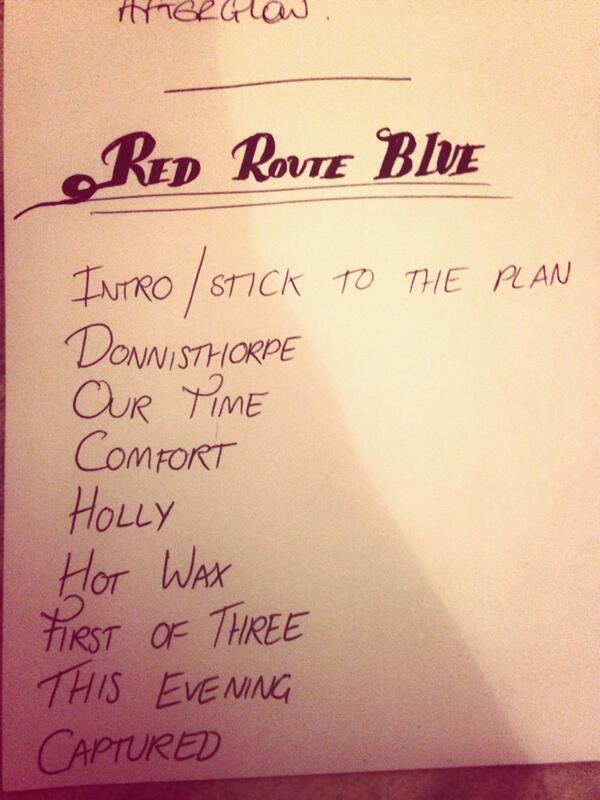 AFTERGLOW.
RED ROUTE BLUE
INTRO/STICK TO THE PLAN
DONNISTHORPE
OUR TIME
COMFORT
HOLLY
HOT WAX
FIRST OF THREE
THIS EVENING
CAPTURED